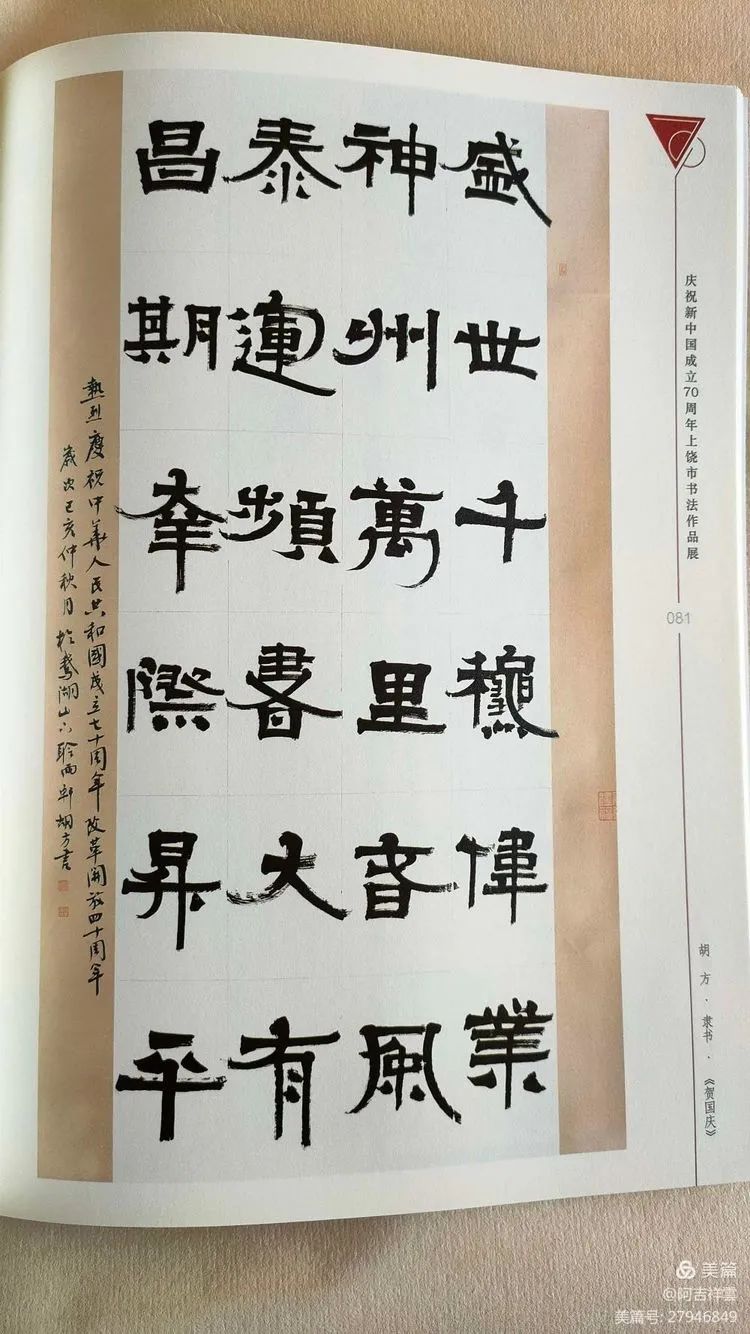 盛世千龝偉業
神州萬里音風
泰運頻書大有
昌期幸際昇平
熱烈慶祝中華人民共和國成立七十周年改革開放四十周年
歲次己亥仲秋月於鵝湖山下聆雨軒胡方書
庆祝新中国成立70周年上饶市书法作品展
081
胡方·隶书·《贺国庆》
美篇
@阿吉祥雲
美篇号: 27946849